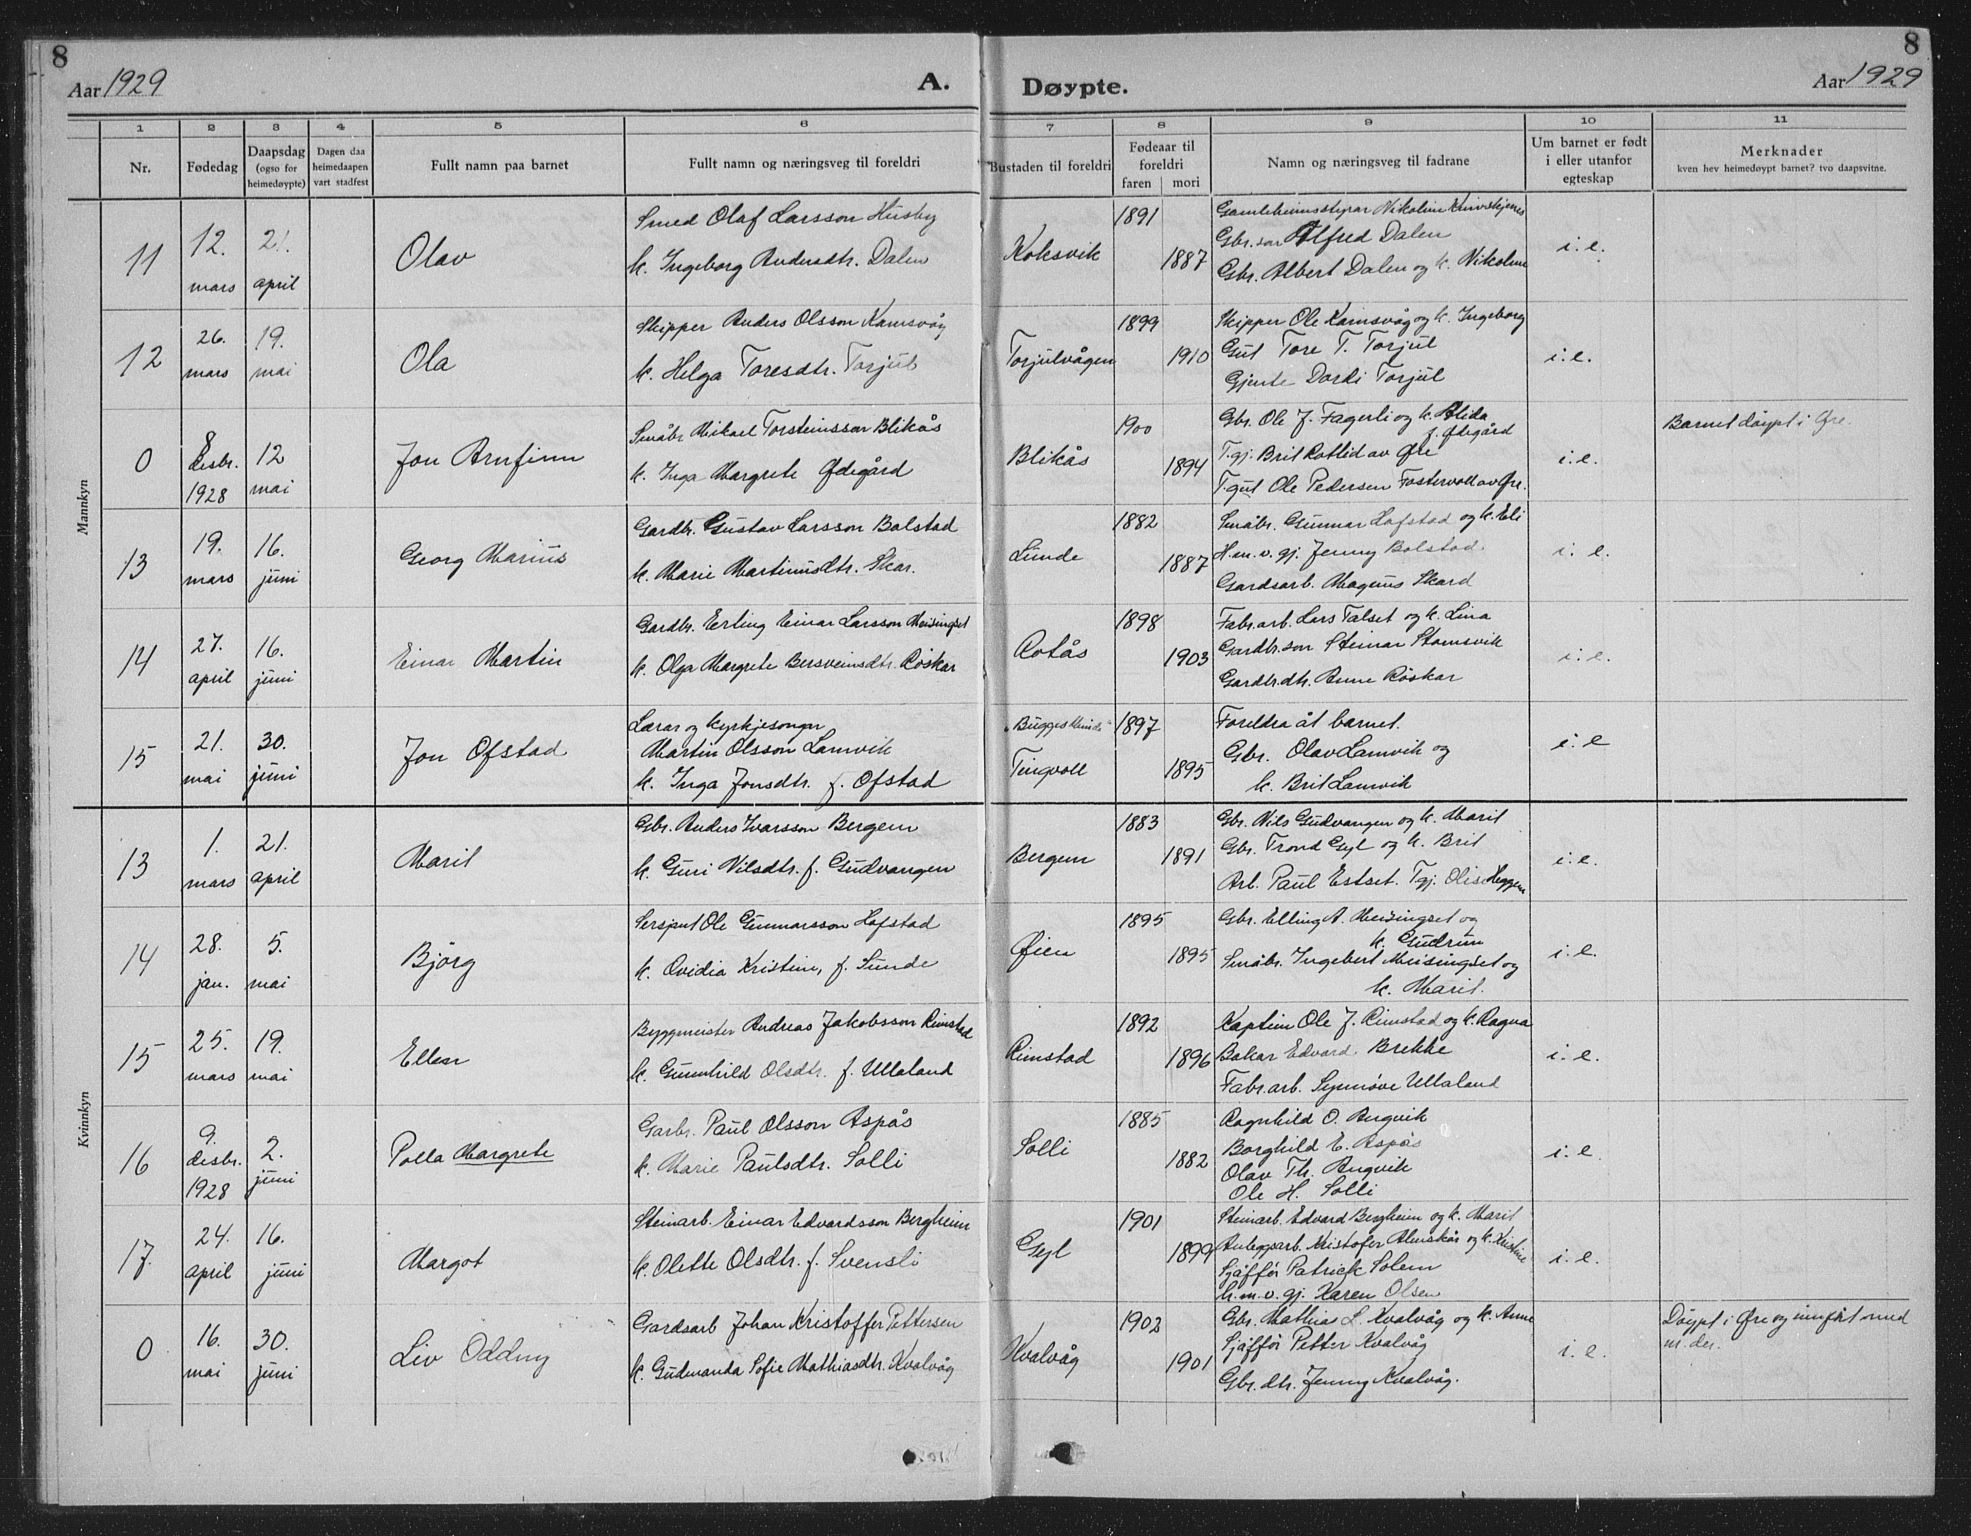 8
Aar 1929
A.
Døypte.
8
Aar 1929
1
2
3
4
5
6
7
8
9
10
11
Nr.
Fødedag
Daapsdag (ogso for heimedøypte)
Dagen daa heimedaapen vart stadfest
Fullt namn paa barnet
Fullt namn og næringsveg til foreldri
Bustaden til foreldri
Fødeaar til foreldri
faren
mori
Namn og næringsveg til fadrane
Um barnet er født i eller utanfor egteskap
Merknader
kven hev heimedøypt barnet? tvo daapsvitne.
Mannkyn
11
12. mars
21. april
Olav
Smed Olaf Larsson Husby
k. Ingeborg Andersdtr. Dalen
Koksvik
1891
1887
Gamleheimsstyrar Nikoline
Gbr. son Alfred Dalen
Gbr. Albert Dalen og k. Nikoline
i. e.
12
26. mars
19. mai
Ola
Skipper Anders Olsson Kamsvåg
k. Helga Toresdtr. Torjul
Torjulvågen
1899
1910
Skipper Ole Kamsvåg og k. Ingeborg
Gut Tore T. Torjul
Gjente Dordi Torjul
i. e.
0
8 desbr. 1928
12 mai
Jon Arnfinn
Småbr Mikael Torsteinsson Blikås
k. Inga Margrete Ødegård
Blikås
1900
1894
Gbr. Ole J. Fagerli og k. Alida
f. Ødegård
T.gj. Brit Rottid av Øre
T.gut Ole Pedersen Fostervoll av Øre.
i. e.
Barnet døypt i Øre.
13
19. mars
16. juni
Georg Marius
Gardbr. Gustav Larsson Bolstad
k. Marie Martinusdtr. Skar.
Lunde
1882
1887
Småbr. Gunnar Hofstad og k. Eli
H.m.v. gj. Jenny Bolstad.
Gardsarb. Magnus Skard
i. e.
14
27. april
16. juni
Einar Martin
Gardbr. Erling Einar Larsson Meisingset
k. Olga Margrete Bersveinsdtr. Røskar
Rotås
1898
1903
Fabr.arb. Lars Talset og k. Lina
Gardbr.son Steinar Stomsvik
Gardbr.dtr. Anne Røskar
i. e.
15
21. mai
30. juni
Jon Ofstad
Lærar og kyrkjesongar
Martin Olsson Lamvik
k. Inga Jonsdtr. f. Ofstad
"Bugges Minde"
Tingvoll
1897
1895
Foreldra åt barnet.
Gbr. Olav Lamvik og
k. Brit Lamvik
i. e
Kvinnkyn
13
1. mars
21. april
Marit
Gbr. Anders Ivarsson Bergem
k. Guri Nilsdtr. f. Gudvangen
Bergem
1883
1891
Gbr. Nils Gudvangen og k. Marit
Gbr. Trond Gyl og k. Brit
Arb. Paul Estset. T.gj. Olise Heggem
i. e.
14
28. jan.
5. mai
Bjørg
Sersjant Ole Gunnarsson Hofstad
k. Ovidia Kristine, f. Sunde
Øien
1895
1895
Gbr. Elling A. Meisingset og
k. Gudrun
Småbr. Ingebert Meisingset og
k. Marit.
i. e.
15
25. mars
19. mai
Ellen
Byggmeister Andreas Jakobsson Rimstad
k. Gunnhild Olsdtr. f. Ullaland
Rimstad
1892
1896
Kaptein Ole J. Rimstad og k. Ragna
Bakar Edvard Brekke
Fabr.arb. Synnøve Ullaland
i. e.
16
9. desbr. 1928
2. juni
Polla Margrete
Garbr. Paul Olsson Aspås
k. Marie Paulsdtr. Solli
Solli
1885
1882
Ragnhild O. Angvik
Borghild E. Aspås
Olav Th. Angvik
Ole H. Solli
i. e.
17.
24. april
16. juni
Margot
Steinarb. Einar Edvardsson Bergheim
k. Olette Olsdtr. f. Svensli
Gyl
1901
1899
Steinarb. Edvard Bergheim og k. Marit
Anleggsarb. Kristofer Almskår og k. Kristine
Sjåffør Patrick Solem
h.m.v. gj. Karen Olsen
i. e.
0
16. mai
30. juni
Liv Oddny
Gardsarb Johan Kristoffer Pettersen
k. Gudmanda Sofie Mathiasdtr. Kvalvåg
Kvalvåg
1902
1901
Gbr. Mathias L. Kvalvåg og k. Anne
Sjåffør Petter Kvalvåg
Gbr. dtr. Jenny Kvalvåg.
i. e.
Døypt i Øre og innført med
nr. der.